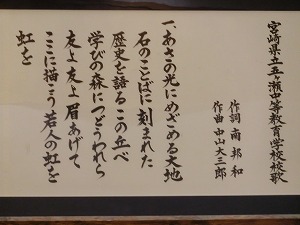 宮崎県立五ヶ瀬中等教育学校校歌
作詞 南 邦和
作曲 中山大三郎
一、あさの光にめざめる大地
石のことばに刻まれた
歴史を語るこの丘べ
学びの森につどうわれら
友よ友よ眉あげて
ここに描こう若人の虹を
虹を